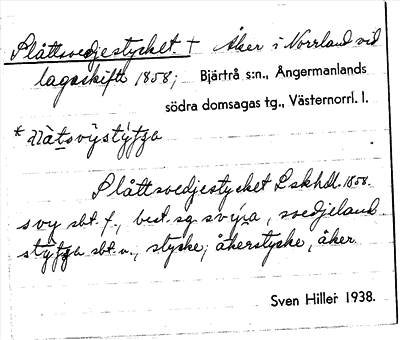 Slåttsvedjestycket. + Åker i Norrland vid
lagaskifte 1858; Bjärtrå s:n., Ångermanlands
södra domsagas tg., Västernorrl. l.
Slåttsvedjestycket Lskhdl. 1858.
svy sbt. f., best. sg svýa, svedjeland
sbt. n., stycke; åkerstycke, åker
Sven Hiller 1938.